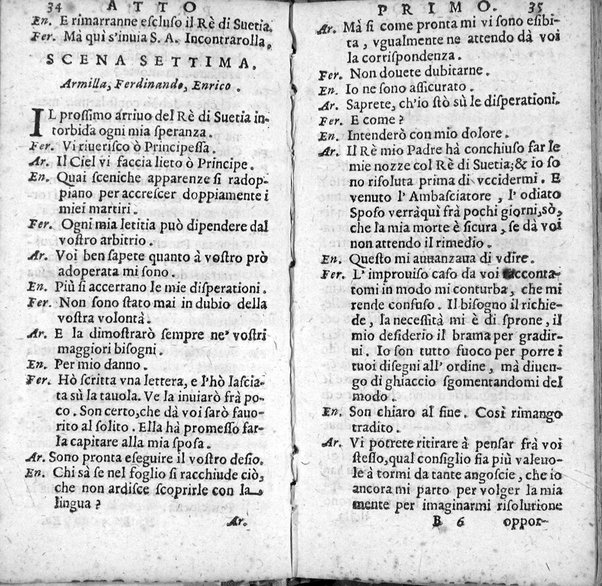 34 ATTO
En. E rimarranne escluso il Rè di Suetia.
Fer. Mà quì s'inuia S. A. Incontrarolla.
SCENA SETTIMA.
Armilla, Ferdinando, Enrico.
IL prossimo arriuo del Rè di Suetia in-
torbida ogni mia speranza.
Fer. Vi riuerisco ò Principessa.
Ar. Il Ciel vi faccia lieto ò Principe.
En. Quai sceniche apparenze si radop-
piano per accrescer doppiamente i
miei martiri.
Fer. Ogni mia letitia può dipendere dal
vostro arbitrio.
Ar. Voi ben sapete quanto à vostro prò
adoperata mi sono.
En. Più si accertano le mie disperationi.
Fer. Non sono stato mai in dubio della
vostra volontà.
Ar. E la dimostrarò sempre ne' vostri
maggiori bisogni.
En. Per mio danno.
Fer. Hò scritta vna lettera, e l'hò lascia-
ta sù la tauola. Ve la inuiarò frà po-
co. Son certo, che da voi sarò fauo-
rito al solito. Ella hà promesso far-
la capitare alla mia sposa.
Ar. Sono pronta eseguire il vostro desio.
En. Chi sà se nel foglio si racchiude ciò,
che non ardisce scoprirle con la
lingua?
Ar.
PRIMO. 35
Ar. Mà si come pronta mi vi sono esibi-
ta, vgualmente ne attendo dà voi
la corrispondenza.
Fer. Non douete dubitarne.
En. Io ne sono assicurato.
Ar. Saprete, ch'io stò sù le disperationi.
Fer. E come?
En. Intenderò con mio dolore.
Ar. Il Rè mio Padre hà conchiuso far le
mie nozze col Rè di Suetia; & io so-
no risoluta prima di vccidermi. E
venuto l'Ambasciatore, l'odiato
Sposo verrà quì frà pochi giorni, sò,
che la mia morte è sicura, se dà voi
non attendo il rimedio.
En. Questo mi auuanzaua di vdire.
Fer. L'improuiso caso da voi racconta-
tomi in modo mi conturba, che mi
rende confuso. Il bisogno il richie-
de, la necessità mi è di sprone, il
mio desiderio il brama per gradir-
ui. Io son tutto fuoco per porre i
tuoi disegni all'ordine, mà diuen-
go di ghiaccio sgomentandomi del
modo.
En. Son chiaro al fine. Così rimango
tradito.
Ar. Vi potrete ritirare à pensar frà voi
stesso, qual consiglio sia più valeuo-
le à tormi da tante angoscie, che io
ancora mi parto per volger la mia
mente per imaginarmi risolutione
B 6 oppor-